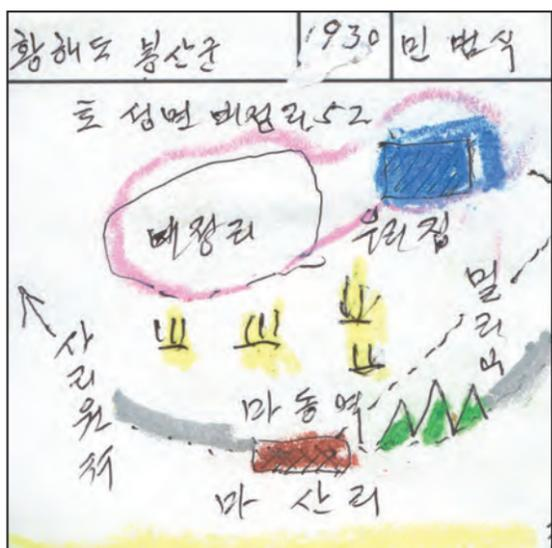 황해도 봉산군 1930 민 범식
토성면 배정리 52
배정리
우리집
사리원역
마동역
마 산 리